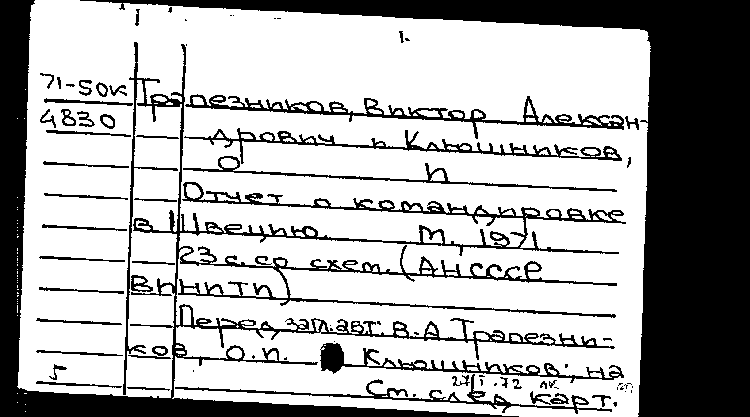 1.
71-50к Трапезников, Виктор Алексан-
4830 дрович и Клюшников,
О П
Отчет о командировке
в Швецию. М., 1971.
23 с. со схем. (АН СССР
ВИНИТИ)
Перед загл. авт. В.А. Трапезни-
ков, О.П. Клюшников; на
5 27/I.72 ЛК
См. след карт.